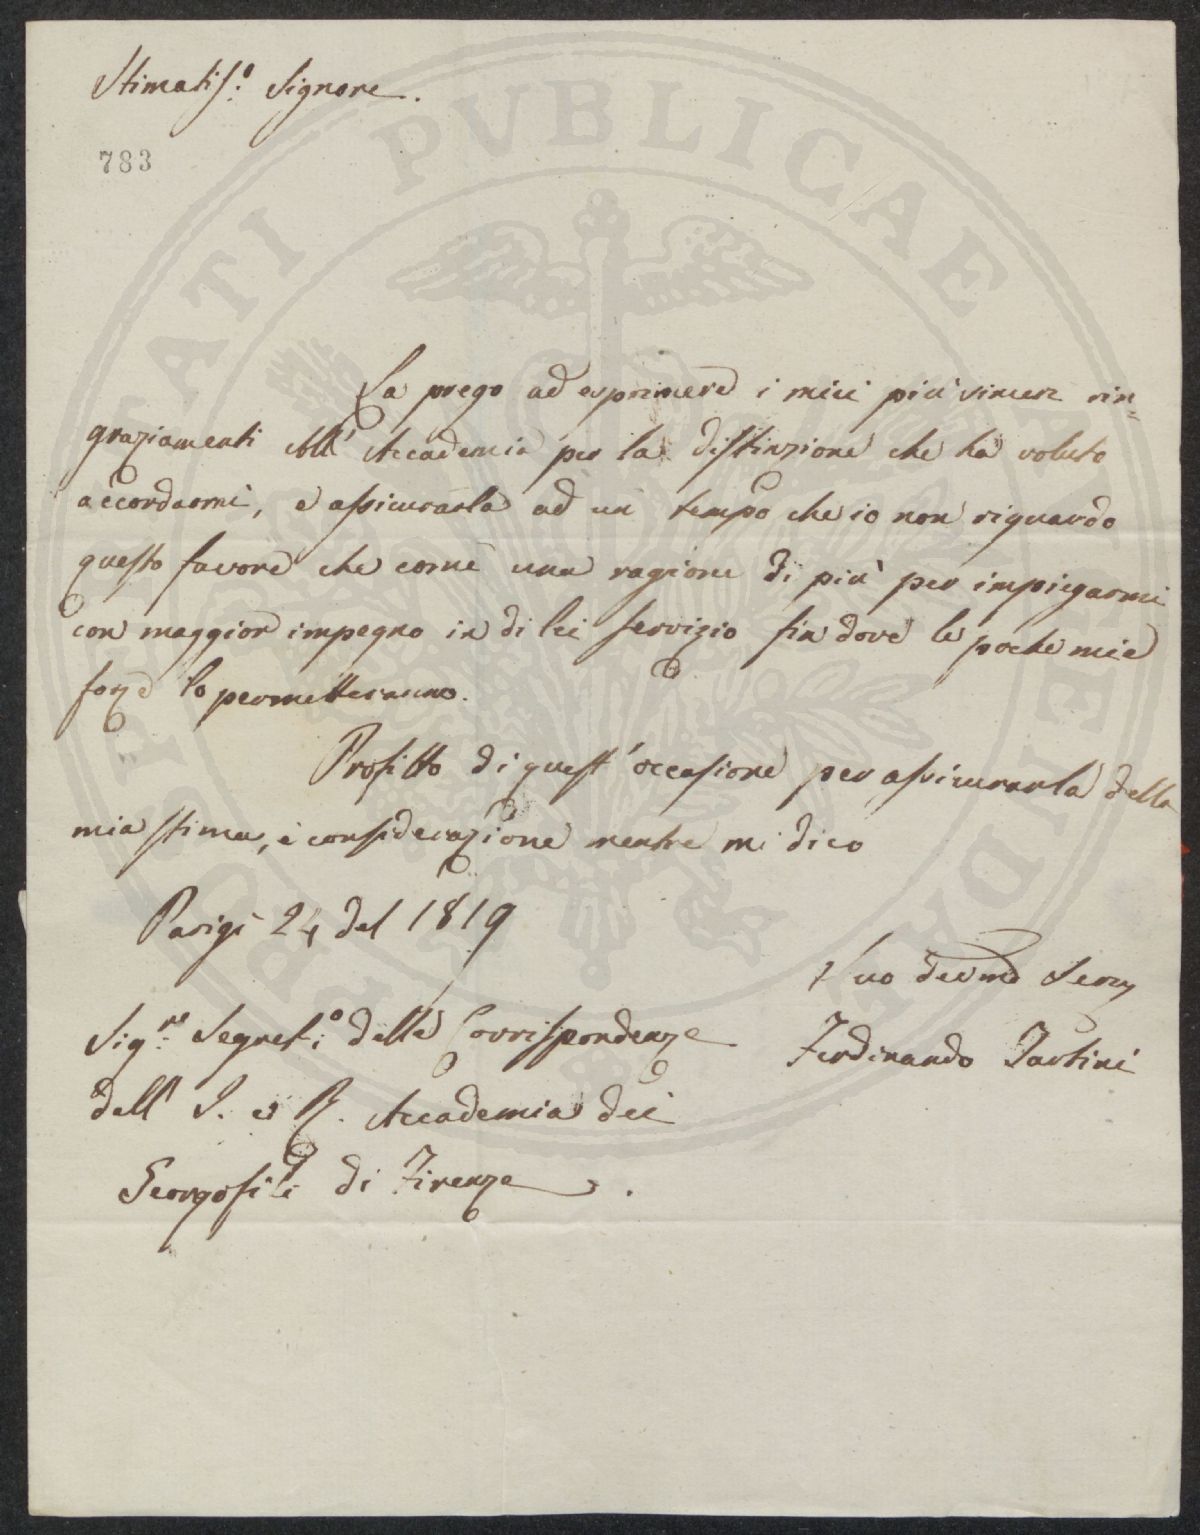 Stimatis.º Signore.
783
La prego ad esprimere i miei più sinceri rin=
graziamenti All' Accademia per la distinzione che ha voluto
accordarmi, e assicurarla ad un tempo che io non riguardo
questo favore che come una ragione di più per impiegarmi
con maggior impegno in di lei servizio fin dove le poche mie
forze lo permetteranno.
Profitto di quest'occasione per assicurarla della
mia stima, e considerazione mentre mi dico
Parigi 24 del 1819
Suo Dev.mo Serv
Ferdinando Tartini
Sig.re Segret.º delle Corrispondenze
dell' I. e R. Accademia dei
Georgofili di Firenze.